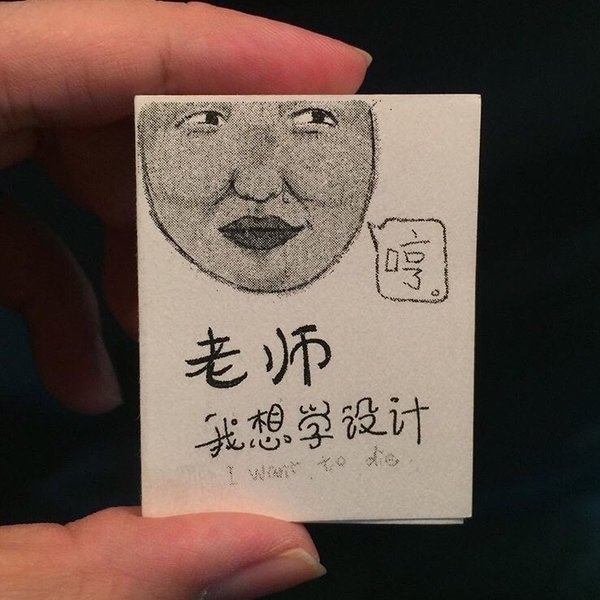 哼。
老师
我想学设计
I want to die.